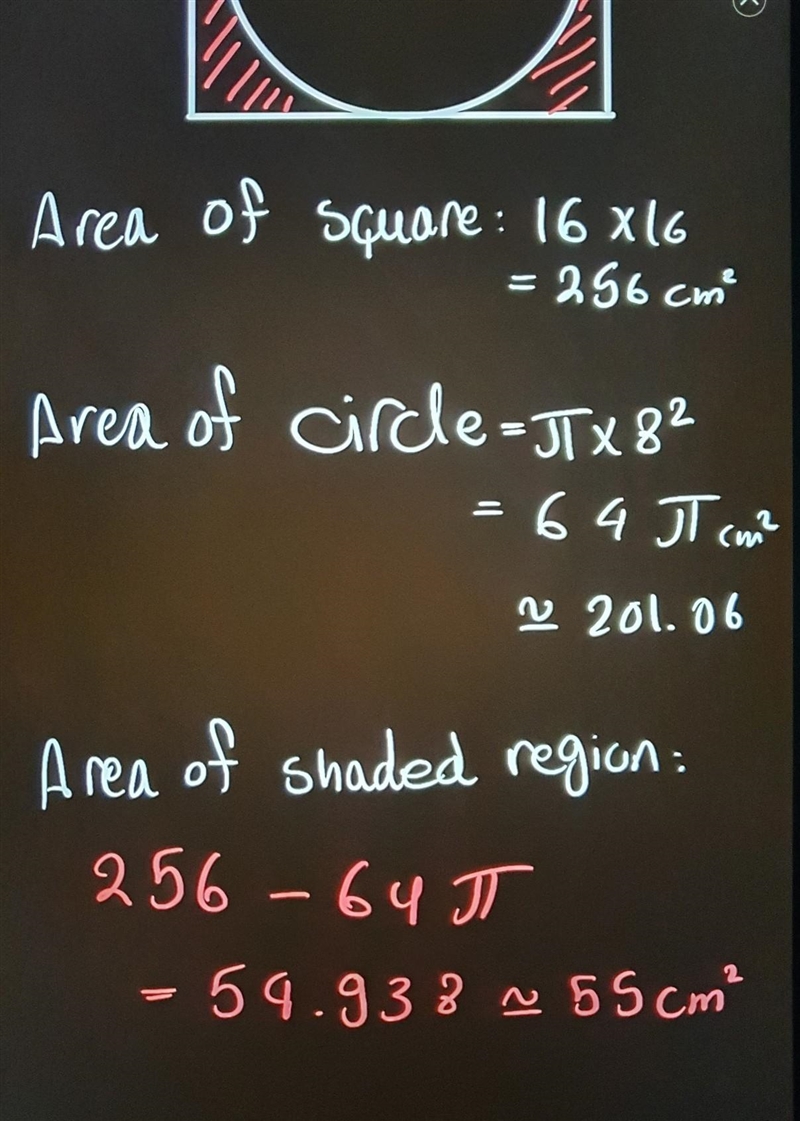 Area of square: 16 × 16
= 256 cm²
Area of circle = π × 8²
= 64 π cm²
≃ 201.06
Area of shaded region:
256 - 64 π
= 54.938 ≃ 55 cm²